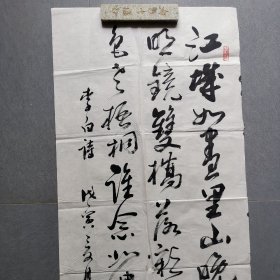 江城如畫里山晚
明鏡雙橋落彩
色老梧桐誰念北
李白詩 戊寅